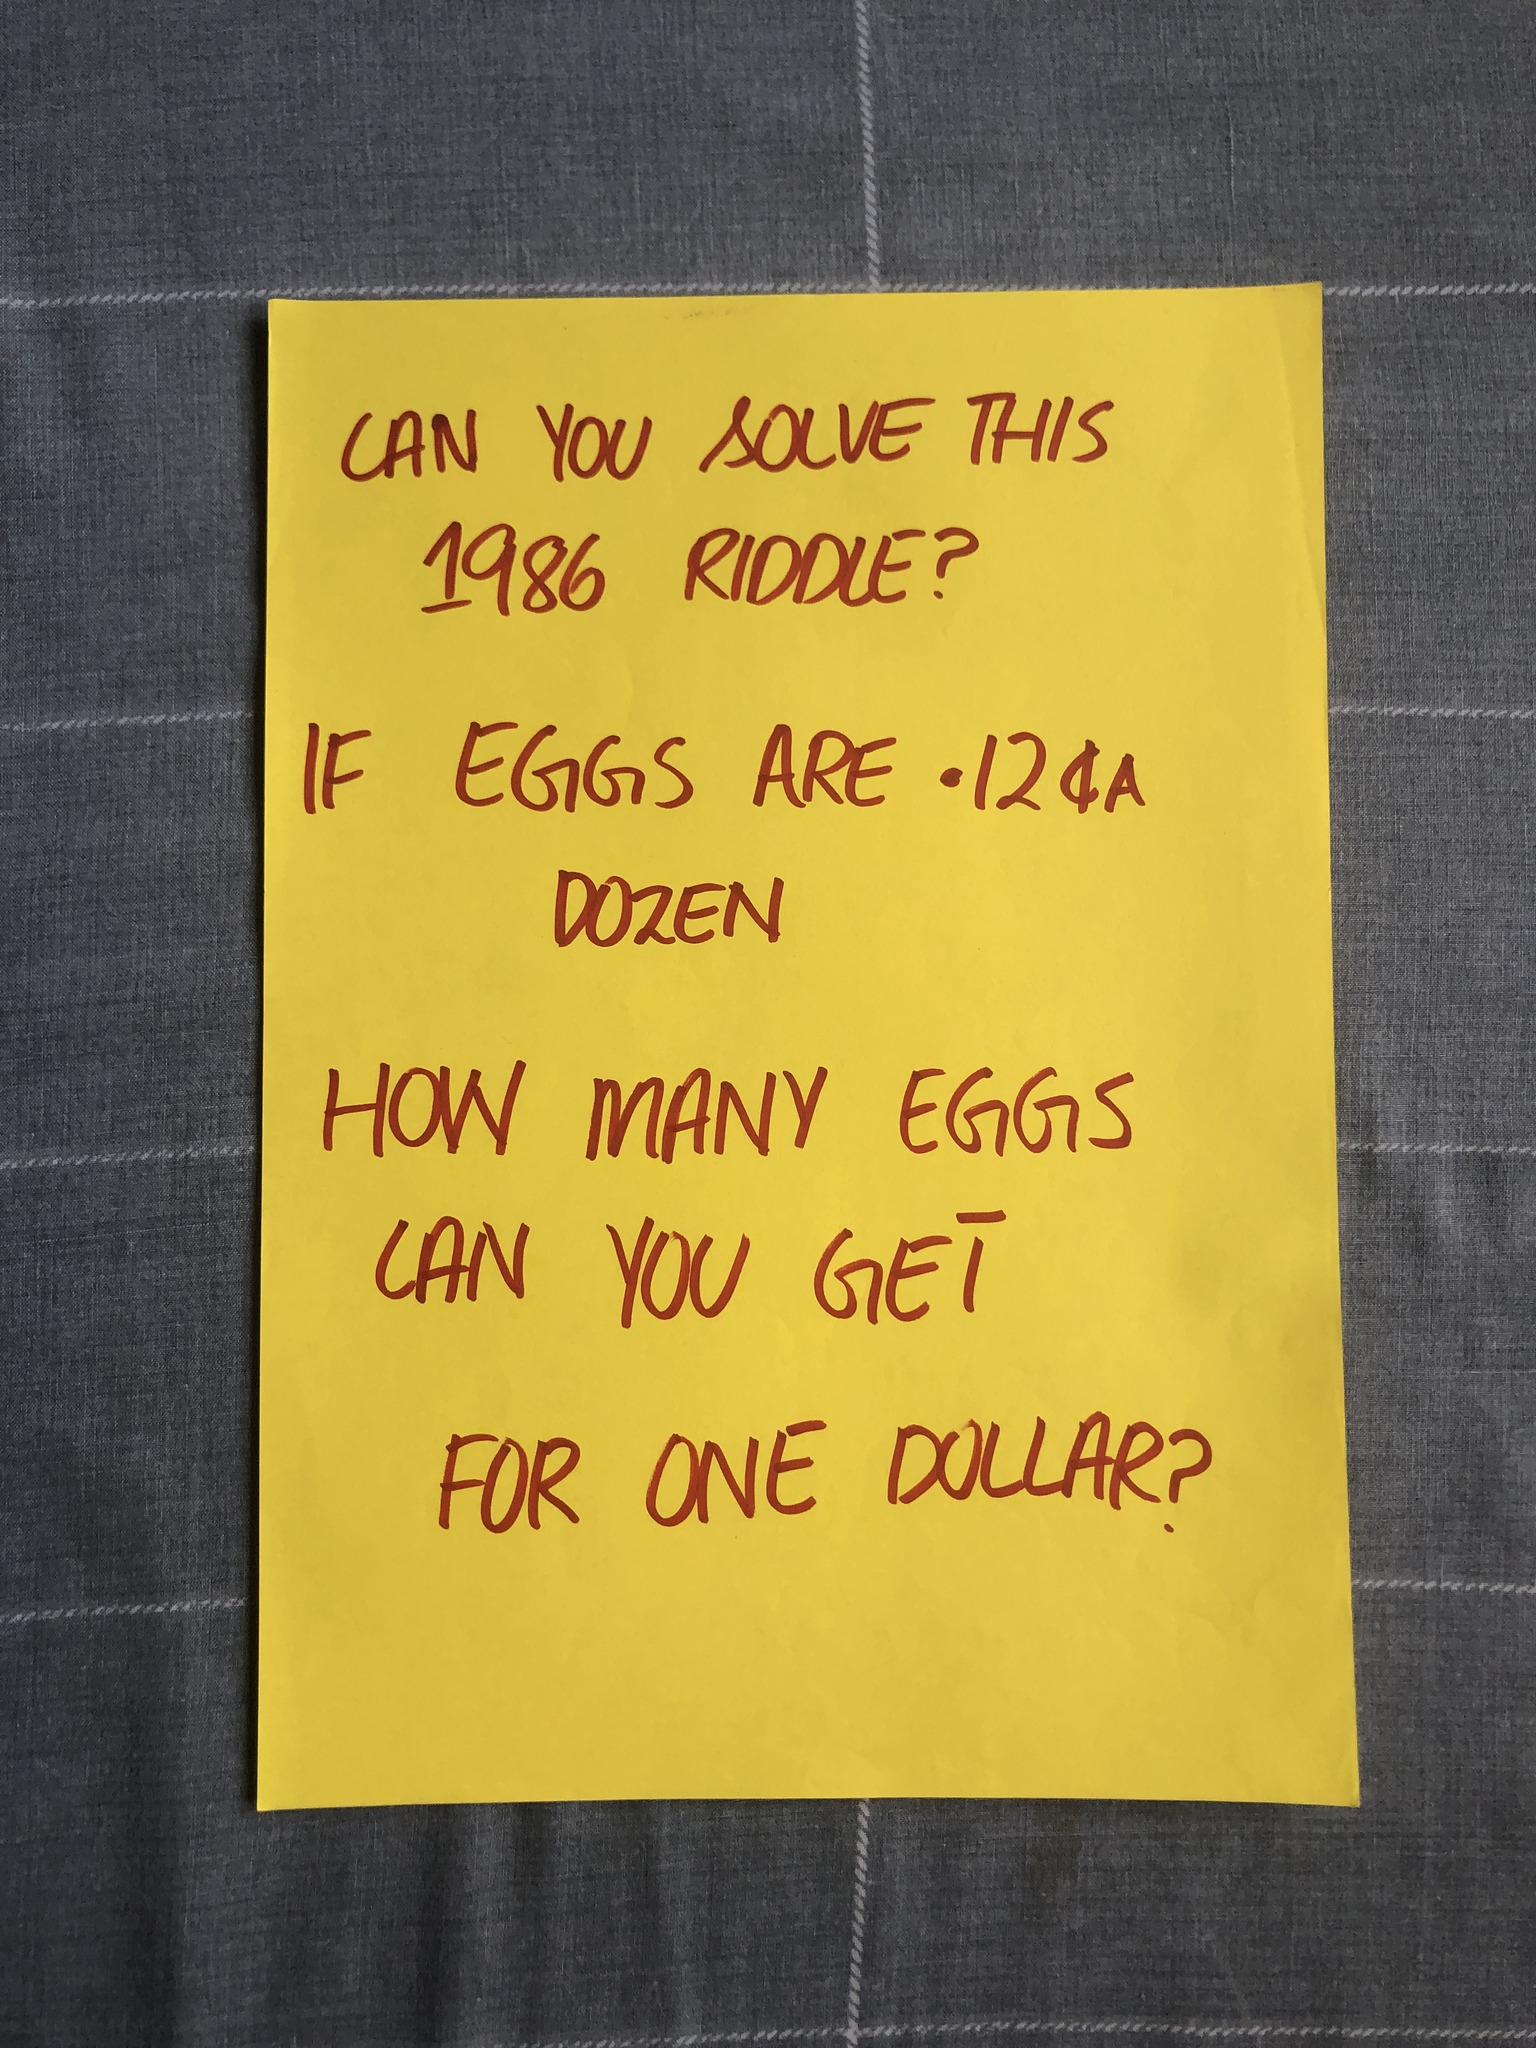 CAN YOU SOLVE THIS
1986 RIDDLE?
IF EGGS ARE .12¢ A
DOZEN
HOW MANY EGGS
CAN YOU GET
FOR ONE DOLLAR?